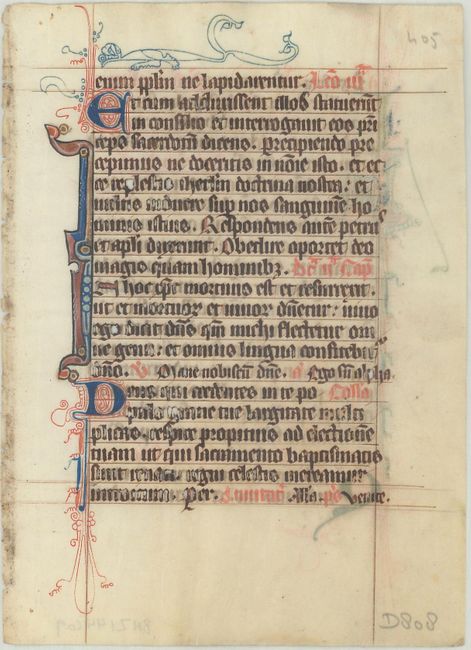 405
enim pplm ne lapidarentur. Lco iii
Et cum adduxissent illos statuerunt
in consilio et interrogauit eos pri
ceps sacerdotum dicens. precipiendo pre
cepimus ne doceritis in noie isto. et ec
ce replestis iherlm doctrina uestra: et
uultis inducere sup nos sanguine ho
minis istius. Respondens aute petrus
et apli dixerunt. Obedire oportet deo
magis quam hominibz.
hoc xpc mortuus est et resurrexit.
ut et mortuor et uiuor dnetur: uiuo
ego dicit dns qm michi flectetur om
ne genu: et omnis lingua confitebit
dno. V Mane nobiscum dne. a Ego sum alpha.
Deus qui credentes in te po Colla
pulos gratie tue largitate multi
plicas. respice propitius ad electione
tuam ut qui sacramento baptismatis
sunt renati. regni celestis mereantur
introitum. Per. Inuitat. Alla. ps Venite.
D808